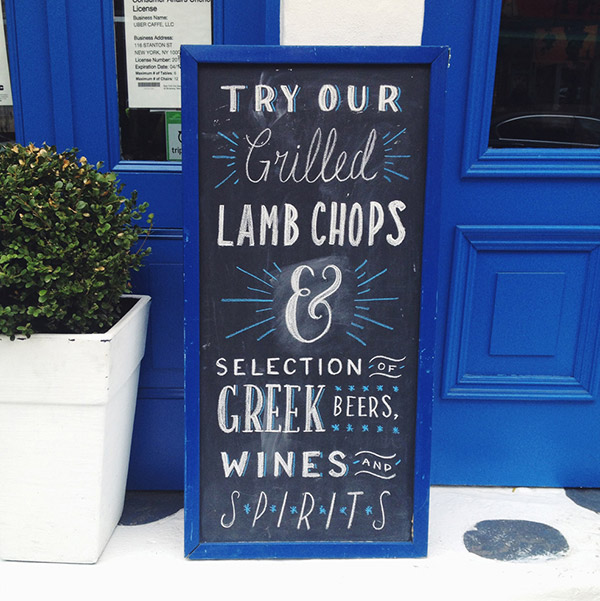 License
Business Name:
UBER CAFFE, LLC
Business Address:
116 STANTON ST
NEW YORK, NY
License Number:
Expiration Date:
Maximum # of Tables
Maximum # of Chairs
TRY OUR
Grilled
LAMB CHOPS
&
SELECTION OF
GREEK BEERS,
WINES AND
SPIRITS